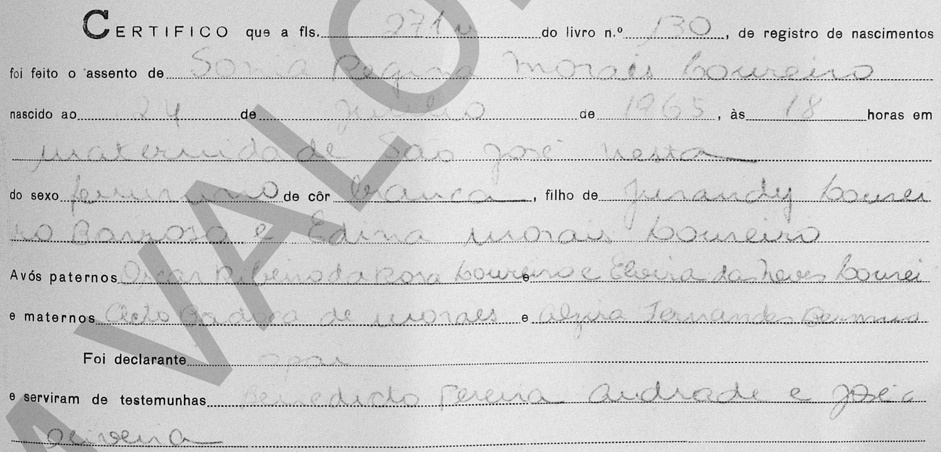 CERTIFICO que a fls. 271 v do livro n.º 130, de registro de nascimentos
foi feito o assento de Sonia Regina Morais Loureiro
nascido ao 24 de Julho de 1965, às 18 horas em
maternidade São José nesta
do sexo feminino de côr branca, filho de Jurandy Lourei
ro Barroso e Edina Morais Loureiro
Avós paternos Oscar Ribeiro da Rosa Loureiro e Elvira das Neves Lourei
e maternos de Moraes e Alzira Fernandes
Foi declarante o pai
e serviram de testemunhas Benedicto Pereira Andrade e José
Oliveira
A VALO